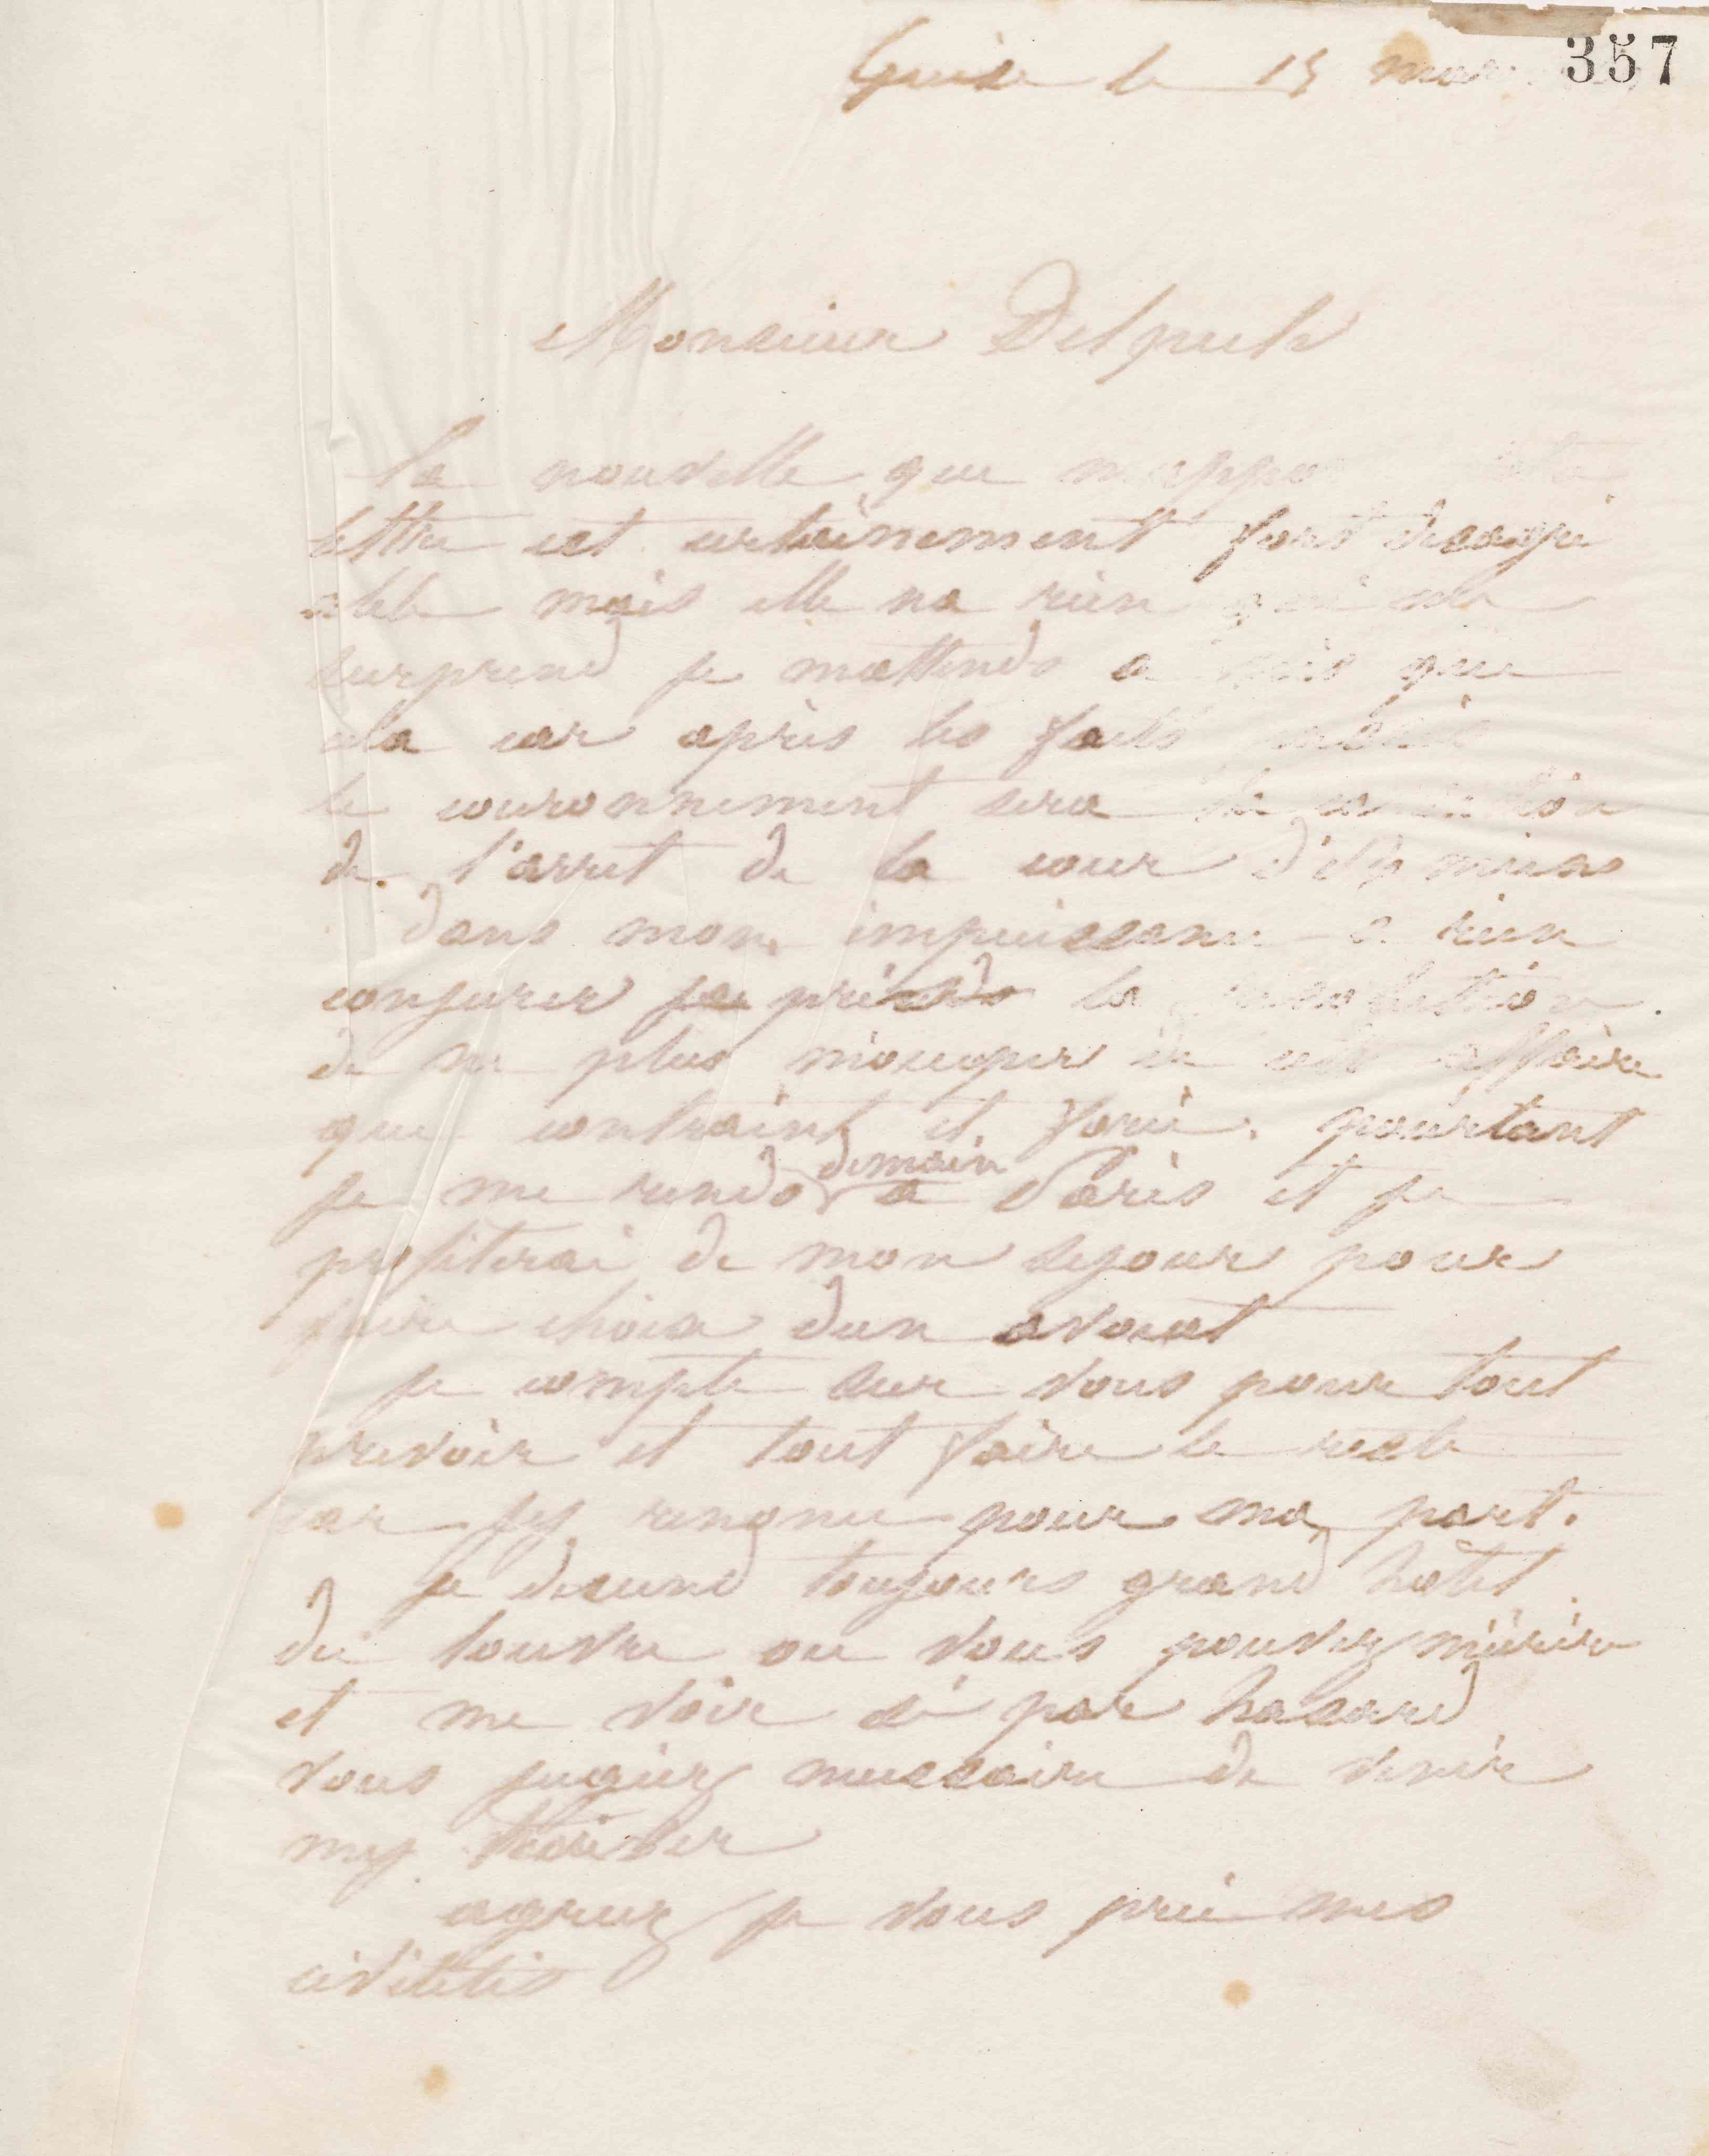 Guise le 15 mars
357
Monsieur Delpech
la nouvelle que m'apporte
lettre est certainement fort desagré
able mais elle na rien qui me
surprend je mattends a pis que
cela car après les faits
le couronnement sera la
de l'arret de la cour d'Amiens
dans mon impuissance a rien
conjurer je prends la resolution
de ne plus m'occuper de cette affaire
que contraint et forcé. pourtant
je me rends demain a Paris et je
profiterai de mon sejour pour
faire choix dun avocat
je compte sur vous pour tout
prevoir et tout faire le reste
car j'y renonce pour ma part.
je descend toujours grand hotel
du louvre ou vous pouvez m'écrire
et me voir si par hasard
vous jugiez necessaire de venir
my trouver
agreez je vous prie mes
civilités